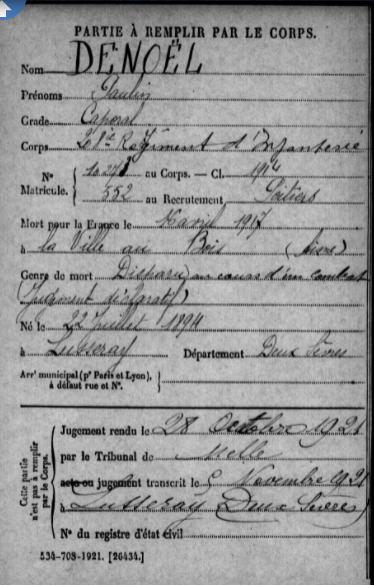 PARTIE À REMPLIR PAR LE CORPS.
Nom DENOËL
Prénoms Paulin
Grade Caporal
Corps Régiment d'Infanterie
N° Matricule. { 10.278 au Corps. — Cl. 1914
552 au Recrutement Poitiers
Mort pour la France le avril 1917
à la Ville au Bois (Aisne)
Genre de mort Disparu au cours d'un combat
(Jugement déclaratif)
Né le 22 Juillet 1894
à Lusseray Département Deux Sèvres
Arr' municipal (p' Paris et Lyon), à défaut rue et N°.
Cette partie n'est pas à remplir par le Corps.
Jugement rendu le 28 Octobre 1921
par le Tribunal de Melle
acte ou jugement transcrit le 5 Novembre 1921
à Lusseray (Deux Sèvres)
N° du registre d'état civil
534-708-1921. [26434.]